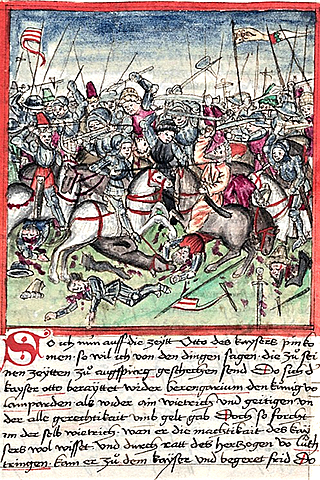 So ich nun auff die zeytt Otto des kaysers pin ko
men so wil ich von den dingen sagen die zů sei
nen zeytten zů augspurg geschechen send Do sich d
kayser otto berayttet wider berengarium den künig vo
lamparden als wider ain wietrich und geitigen un
der alle gerechtikait umb gelt gab Doch so forcht
im der selb wietrich wan er die machtikait des kay
sers wol wisset und durch ratt des hertzogen vo luth
tringen kam er zů dem kayser und begeret frid Do